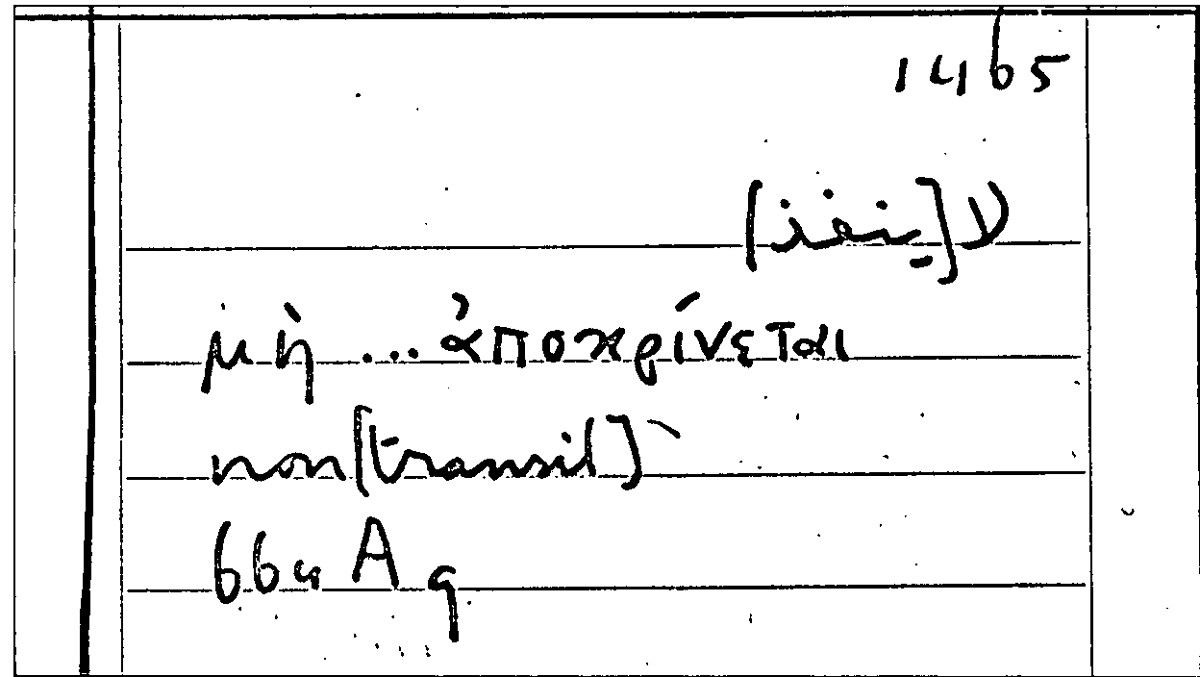 1465
لا [ينفذ]
μὴ ... ἀποκρίνεται
non [transit]
66a A 9